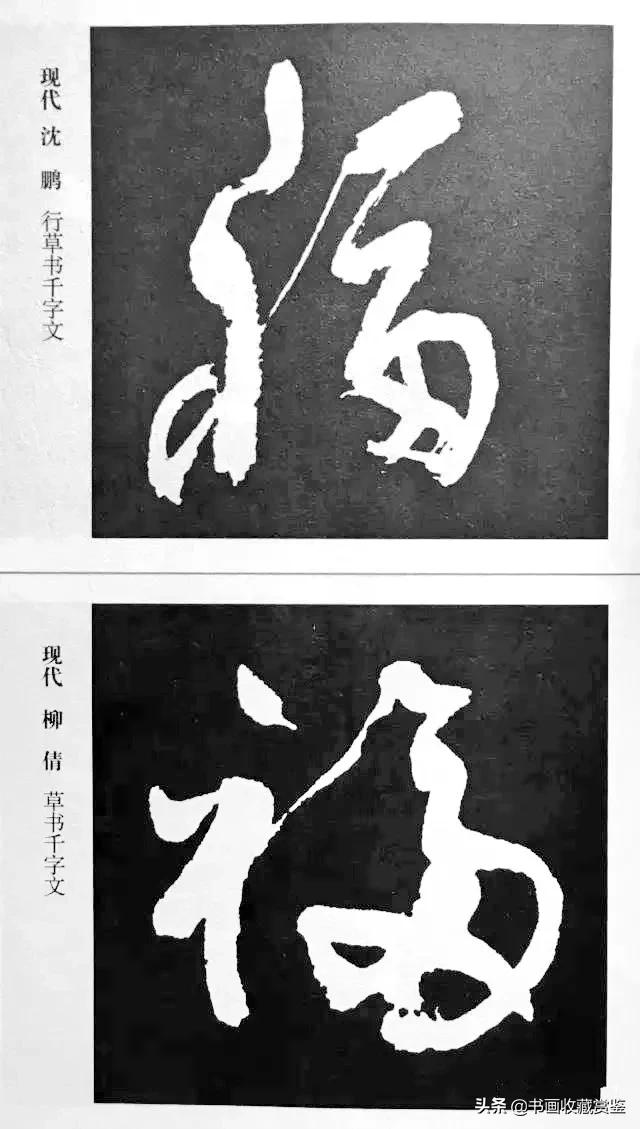 现代 沈 鹏 行草书千字文
福
现代 柳 倩 草书千字文
福
头条 @书画收藏赏鉴